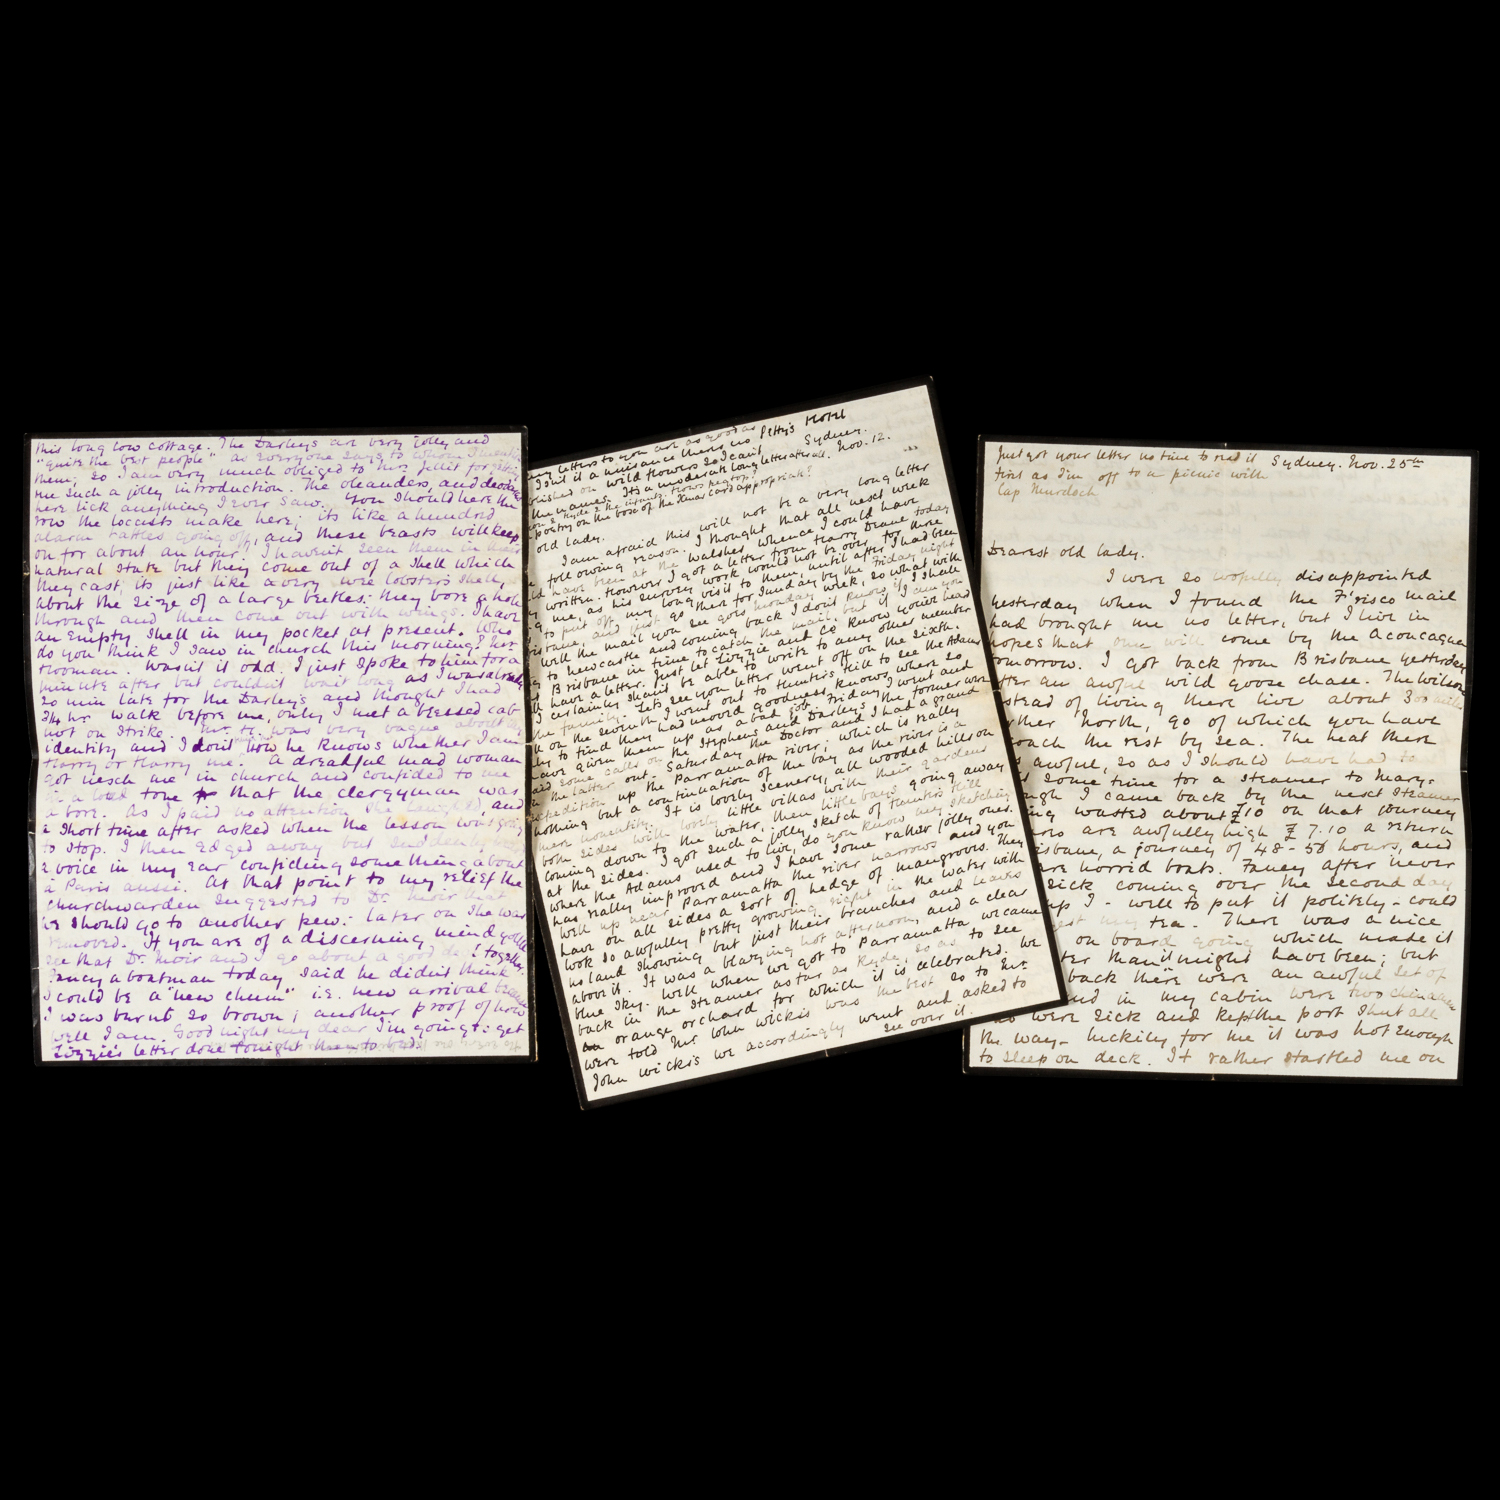 this long low cottage. The Darleys are very jolly and
"quite the best people" as everyone says to whom I mention
them, so I am very much obliged to Mrs Jellit for getting
me such a jolly introduction. The oleanders, and
here lick anything I ever saw. You should hear the
row the locusts make here; its like a hundred
alarm rattles going off, and these beasts will keep
on for about an hour. I havenit seen them in their
natural state but they come out of a shell which
they cast, its just like a very wee lobsters shell,
about the size of a large beetles: they bore a hole
through and then come out with wings. I have
an empty shell in my pocket at present. Who
do you think I saw in church this morning? Mr
Wasnit it odd. I just spoke to him for a
minute after but couldnit wait long as I was already
20 min late for the Darley's and thought I had
3/4 hr walk before me, only I met a blessed cab
not on strike. Mr. T. was very vague about my
identity and I donit know he knows whether I am
Harry or Harry me. A dreadful mad woman
got nesch me in church and confided to me
in a loud tone that the clergyman was
a bore. As I paid no attention she laughed, and
a short time after asked when the lesson was going
to stop. I then edged away but suddenly
a voice in my ear confiding something about
a Paris aussi. At that point to my relief the
churchwarden suggested to Dr. Muir that
he should go to another pew: later on she was
removed. If you are of a discerning mind you'll
see that Dr. Muir and I go about a good deal together.
Fancy a boatman today said he didnit think
I could be a "new chum" i.e. new arrival because
I was burnt so brown; another proof of how
well I am. Good night my dear I'm going to get
Lizzie's letter done tonight then to bed!
my letters to you are as good as Petty's Hotel
I spil it a nuisance theres no Sydney.
published on wild flowers so I canit Nov. 12.
the names. Its a moderate long letter afterall.
& Hyde & the infants. Hows peg top?
poetry on the box of the Xmas card appropriak?
old lady.
I am afraid this will not be a very long letter
following reason. I thought that all nesct week
have been at the Walshes, whence I could have
written. However I got a letter from Harry Deane today
me, as his survey work would not be over for three
to put off my long visit to them until after I had been
and just go there for Sunday by the Friday night
will the mail you see goes Monday week, so what with
to Newcastle and coming back I donit know if I shall
Brisbane in time to catch the mail, but if I can you
have a letter. Just let Lizzie and Co know youire head
I certainly shanit be able to write to any other member
the family. Let's see you letter went off on the sixth.
on the seventh I went out to Hunters Hill to see the Adams
only to find they had moved goodness knows where so
have given them up as a bad job. Friday I went and
paid some calls on the Stephens and Darleys the former were
the latter out. Saturday the Doctor and I had a grand
expedition up the Parramatta river, which is really
nothing but a continuation of the bay as the river is a
mere nonentity. It is lovely scenery, all wooded hills on
both sides with lovely little villas with their gardens
coming down to the water, then little bays going away
at the sides. I got such a jolly sketch of Hunters Hill
where the Adams used to live, do you know my sketching
has really improved and I have some rather jolly ones.
Well up near Parramatta the river narrows and you
have on all sides a sort of hedge of mangroves. They
look so awfully pretty growing right in the water with
no land showing but just their branches and leaves
above it. It was a blazing hot afternoon, and a clear
blue sky. Well when we got to Parramatta we came
back in the steamer as far as Ryde, so as to see
an orange orchard for which it is celebrated. We
were told Mr John Wicks's was the best so to Mr
John Wicks's we accordingly went and asked to
see over it.
Just got your letter no time to read it Sydney. Nov. 25th
first as I'm off to a picnic with
Cap Murdoch
Dearest old lady.
I were so wofully disappointed
yesterday when I found the F'risco mail
had brought me no letter, but I live in
hopes that one will come by the Aconcagua
tomorrow. I got back from Brisbane yesterday
after an awful wild goose chase. The Wilsons
instead of living there live about 300 miles
further north, 90 of which you have
coach the rest by sea. The heat there
awful, so as I should have had to
some time for a steamer to Mary-
I came back by the nesct steamer
wasted about £10 on that journey
are awfully high £7.10 a return
a journey of 48-50 hours, and
are horrid boats. Fancy after never
sick coming over the second day
up I - well to put it politely - could
my tea. There was a nice
on board going which made it
than it might have been; but
back there were an awful set of
and in my cabin were two chinamen
who were sick and kept the port shut all
the way. luckily for me it was hot enough
to sleep on deck. It rather startled me on